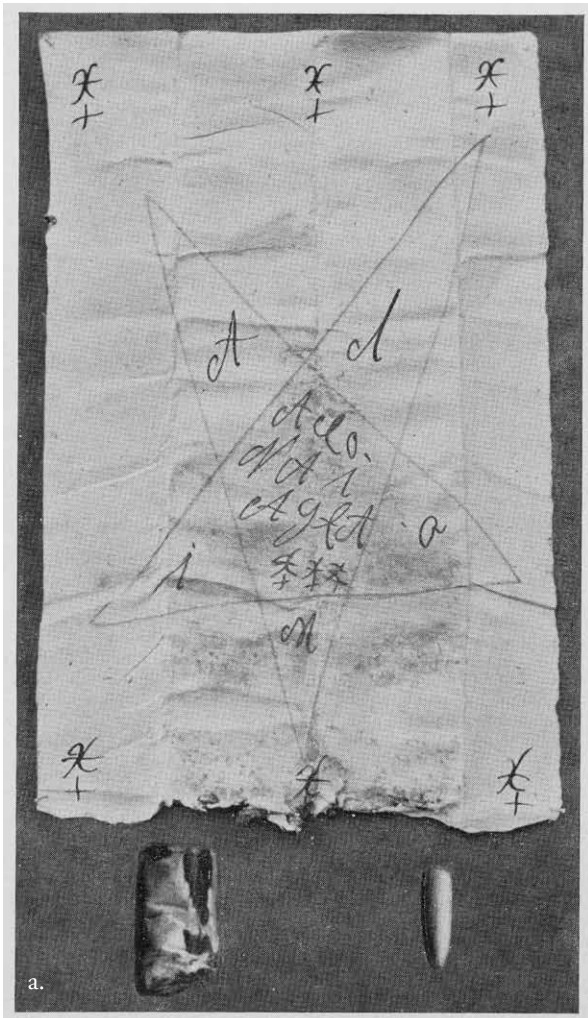 A d
Ado.
Na i
AglA
a
i
N
a.